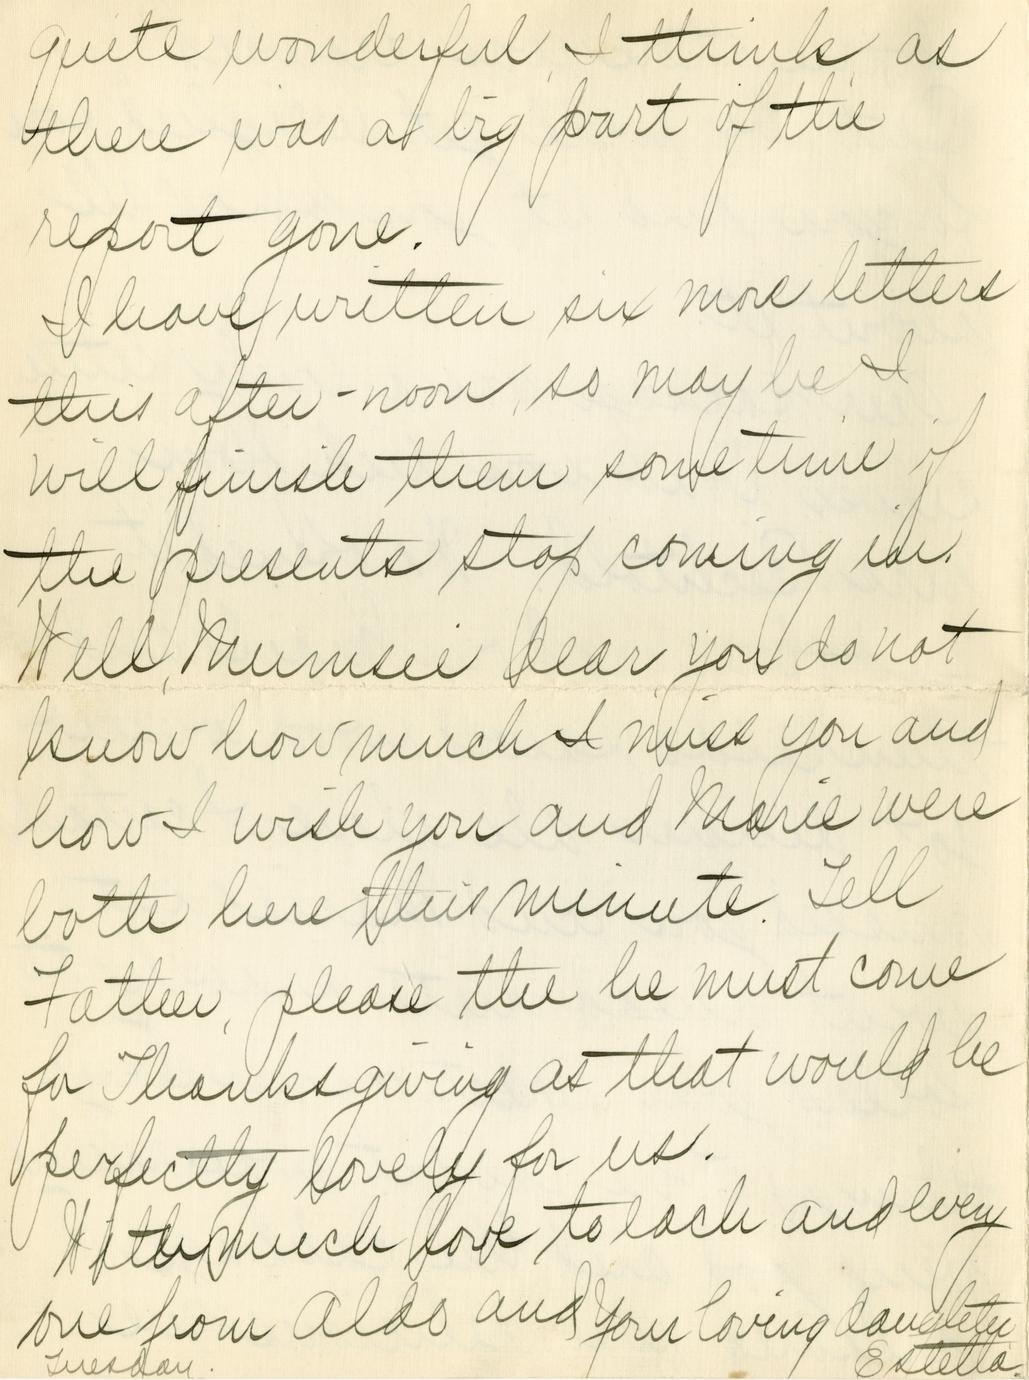 quite wonderful, I think as
there was a big part of the
report gone.
I have written six more letters
this after-noon, so may be I
will finish them sometime if
the presents stop coming in.
Well, Mumsie dear, you do not
know how much I miss you and
how I wish you and Marie were
both here this minute. Tell
Father, please the he must come
for Thanksgiving as that would be
perfectly lovely for us.
With much love to each and every
one from Aldo and Your loving daughter
Tuesday. Estella.